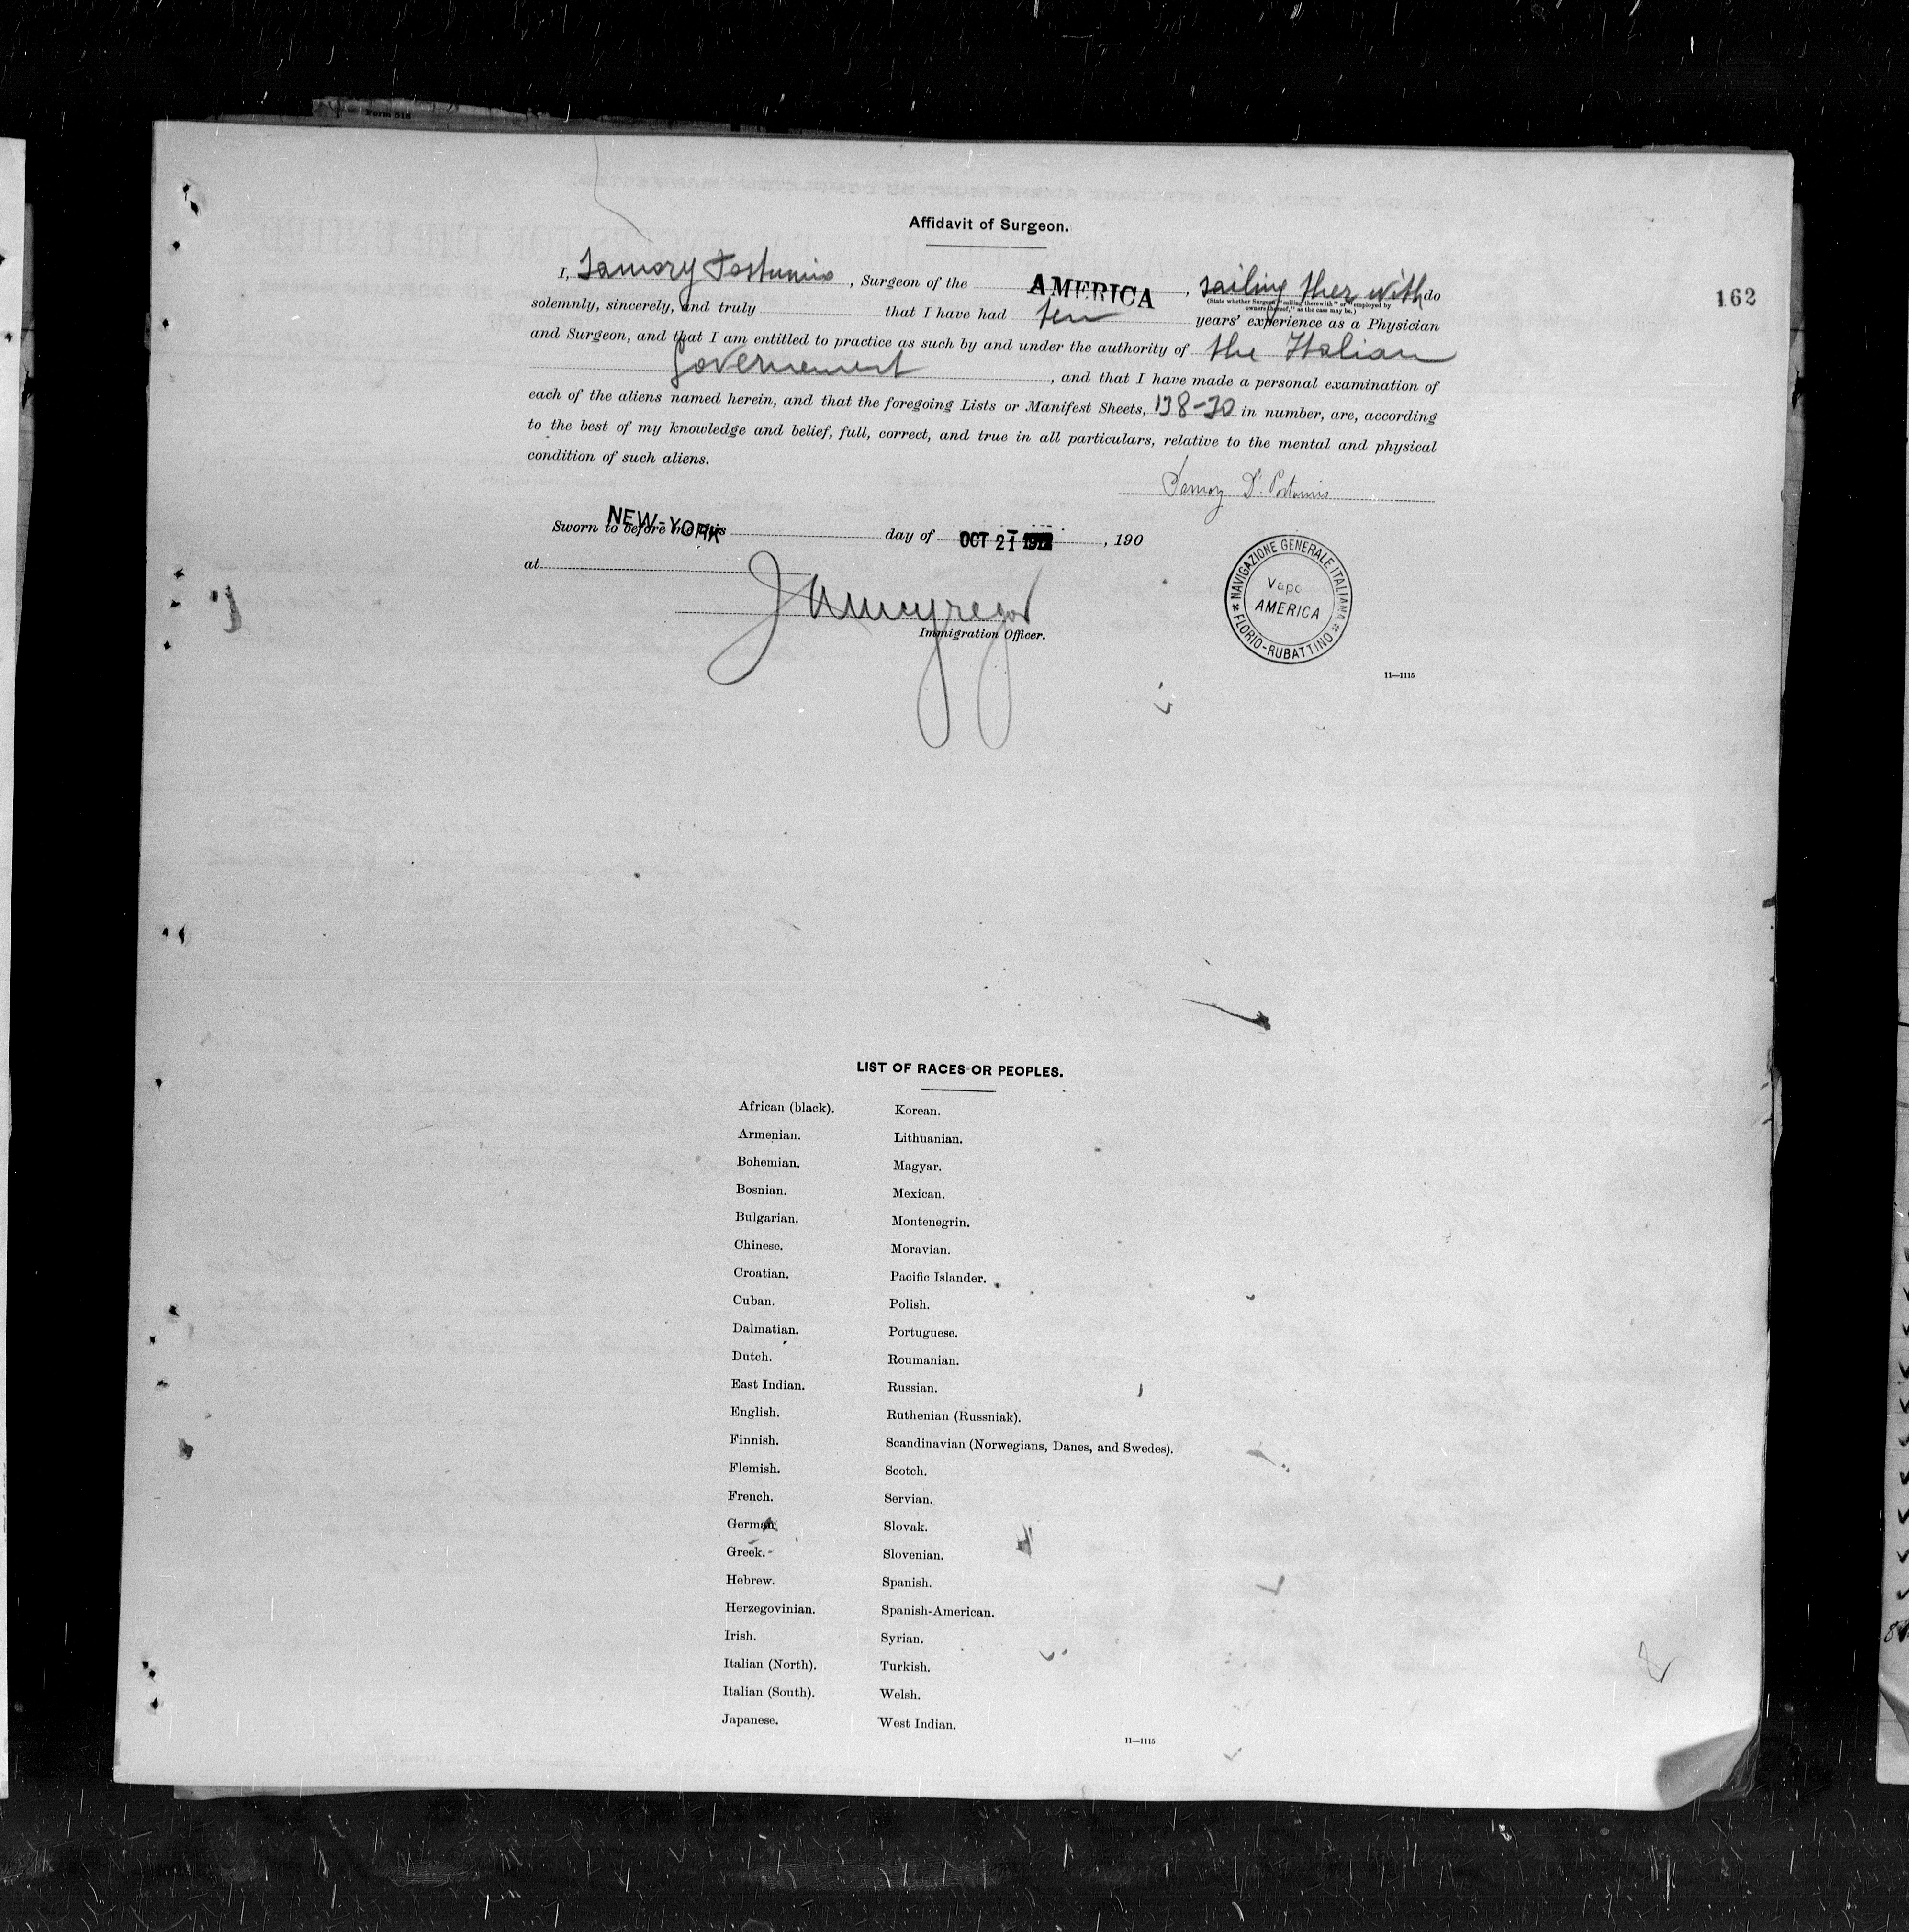 Form 518
Affidavit of Surgeon.
162
I, Samory Postumio, Surgeon of the AMERICA, sailing ther with do
(State whether Surgeon "sailing therewith" or "employed by
owners thereof," as the case may be.)
solemnly, sincerely, and truly that I have had ten years' experience as a Physician
and Surgeon, and that I am entitled to practice as such by and under the authority of the Italian
Governement, and that I have made a personal examination of
each of the aliens named herein, and that the foregoing Lists or Manifest Sheets, 138-30 in number, are, according
to the best of my knowledge and belief, full, correct, and true in all particulars, relative to the mental and physical
condition of such aliens.
NEW-YORK
Sworn to before me this day of OCT 21, 190
at
Immigration Officer.
NAVIGAZIONE GENERALE ITALIANA
Vapo
AMERICA
FLORIO-RUBATTINO
11—1115
LIST OF RACES OR PEOPLES.
African (black).
Armenian.
Bohemian.
Bosnian.
Bulgarian.
Chinese.
Croatian.
Cuban.
Dalmatian.
Dutch.
East Indian.
English.
Finnish.
Flemish.
French.
German.
Greek.
Hebrew.
Herzegovinian.
Irish.
Italian (North).
Italian (South).
Japanese.
Korean.
Lithuanian.
Magyar.
Mexican.
Montenegrin.
Moravian.
Pacific Islander.
Polish.
Portuguese.
Roumanian.
Russian.
Ruthenian (Russniak).
Scandinavian (Norwegians, Danes, and Swedes).
Scotch.
Servian.
Slovak.
Slovenian.
Spanish.
Spanish-American.
Syrian.
Turkish.
Welsh.
West Indian.
11—1115